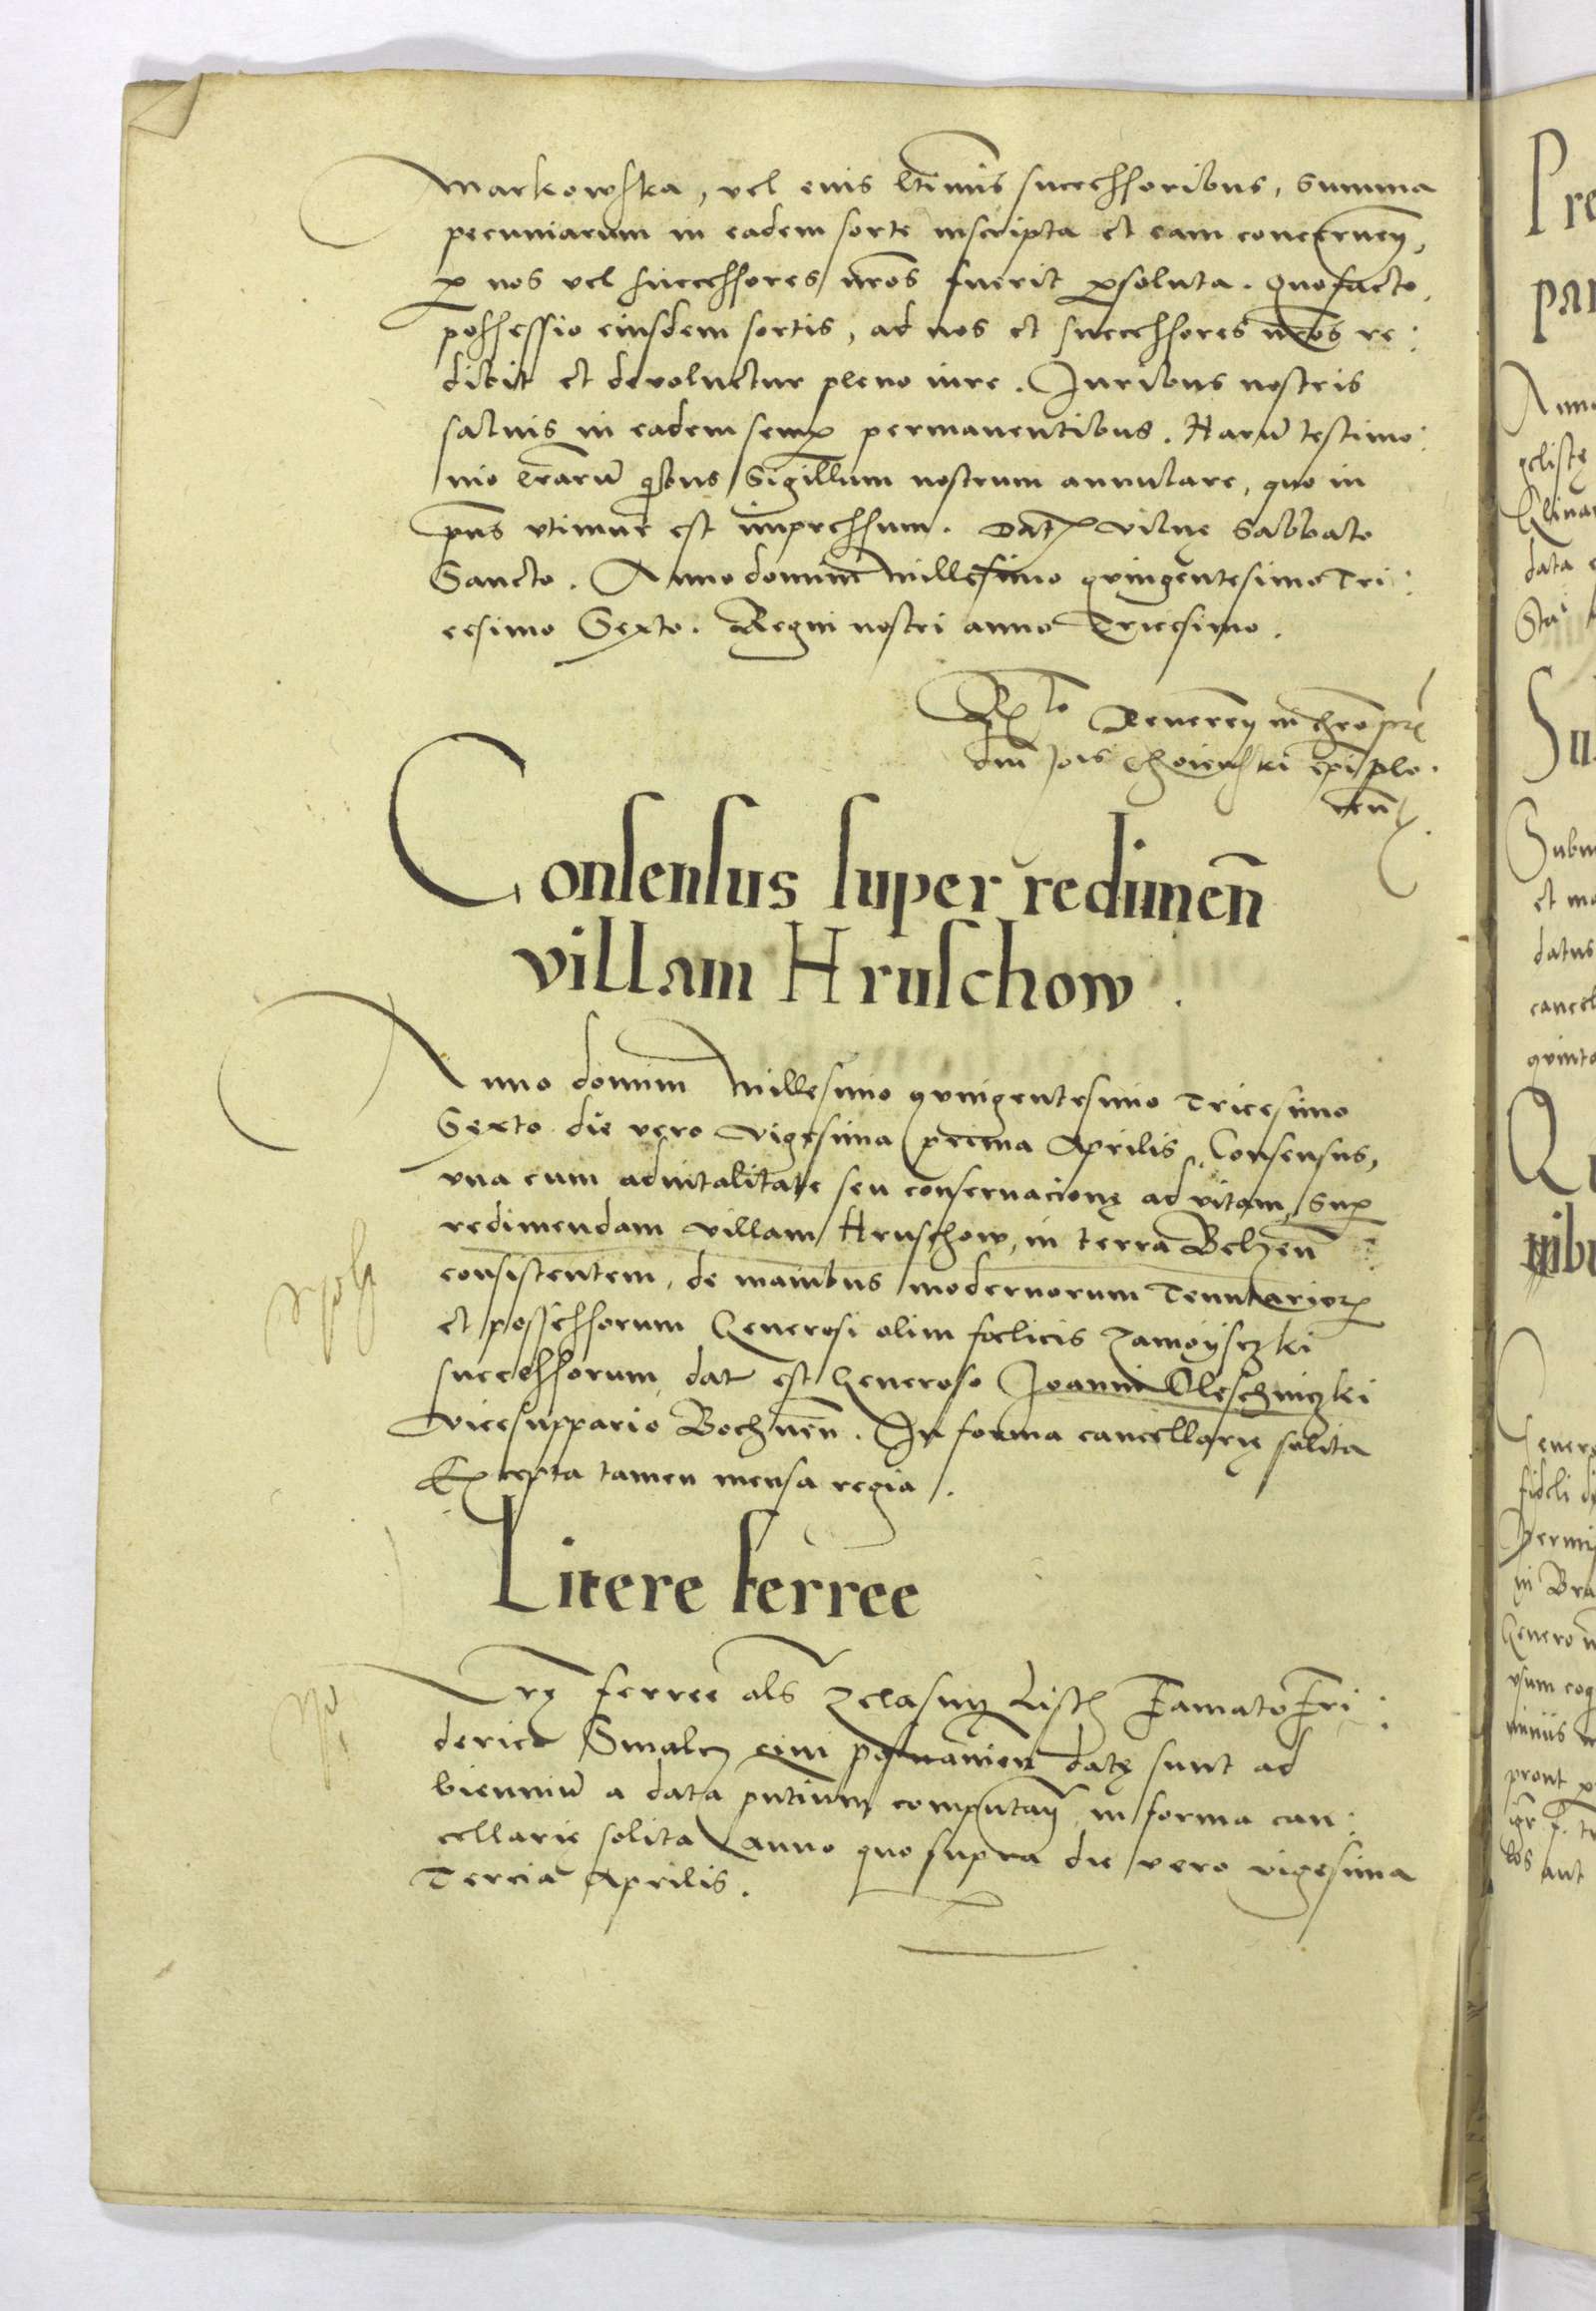 Markowska, vel eius ltimis successoribus, summa
pecuniarum in eadem sorte inscripta et eam concernen,
p nos vel successores nros fuerit psoluta. Quo facto,
possessio eiusdem sortis, ad nos et successores nros re:
dibit et devoluetur pleno iure. Juribus nostris
salvis in eadem semp permanentibus. Harum testimo:
nio lrarum quibus Sigillum nostrum annulare, quo in
pns utimur est impressum. Dat Vilnę Sabbato
Sancto. Anno domini Millesimo quingentesimo Tri:
cesimo Sexto. Regni nostri anno Tricesimo.
Rlo Reveren in chro pris
dni Jois Choienski epi plo.
cen
Consensus super redimen
villam Hruschow.
Anno domini Millesimo quingentesimo Tricesimo
Sexto die vero vigesima prima Aprilis, Consensus,
una cum advitalitate seu conservacionę ad vitam, sup
redimendam villam Hruschow, in terra Belzen
consistentem, de manibus modernorum Tenutarior
et possessorum Generosi olim foelicis Zamoysczki
successorum, dat est Generoso Joanni Oleschniczki
Vicesuppario Bochnen. In forma cancellarię solita
Excepta tamen mensa regia.
Litere ferree
Lrę ferree als Zelasny List Famato Fri:
derico Smalcz civi posnanien datę sunt ad
bienniu a data pntium computan in forma can:
cellarię solita anno quo supra die vero vigesima
Tercia Aprilis.